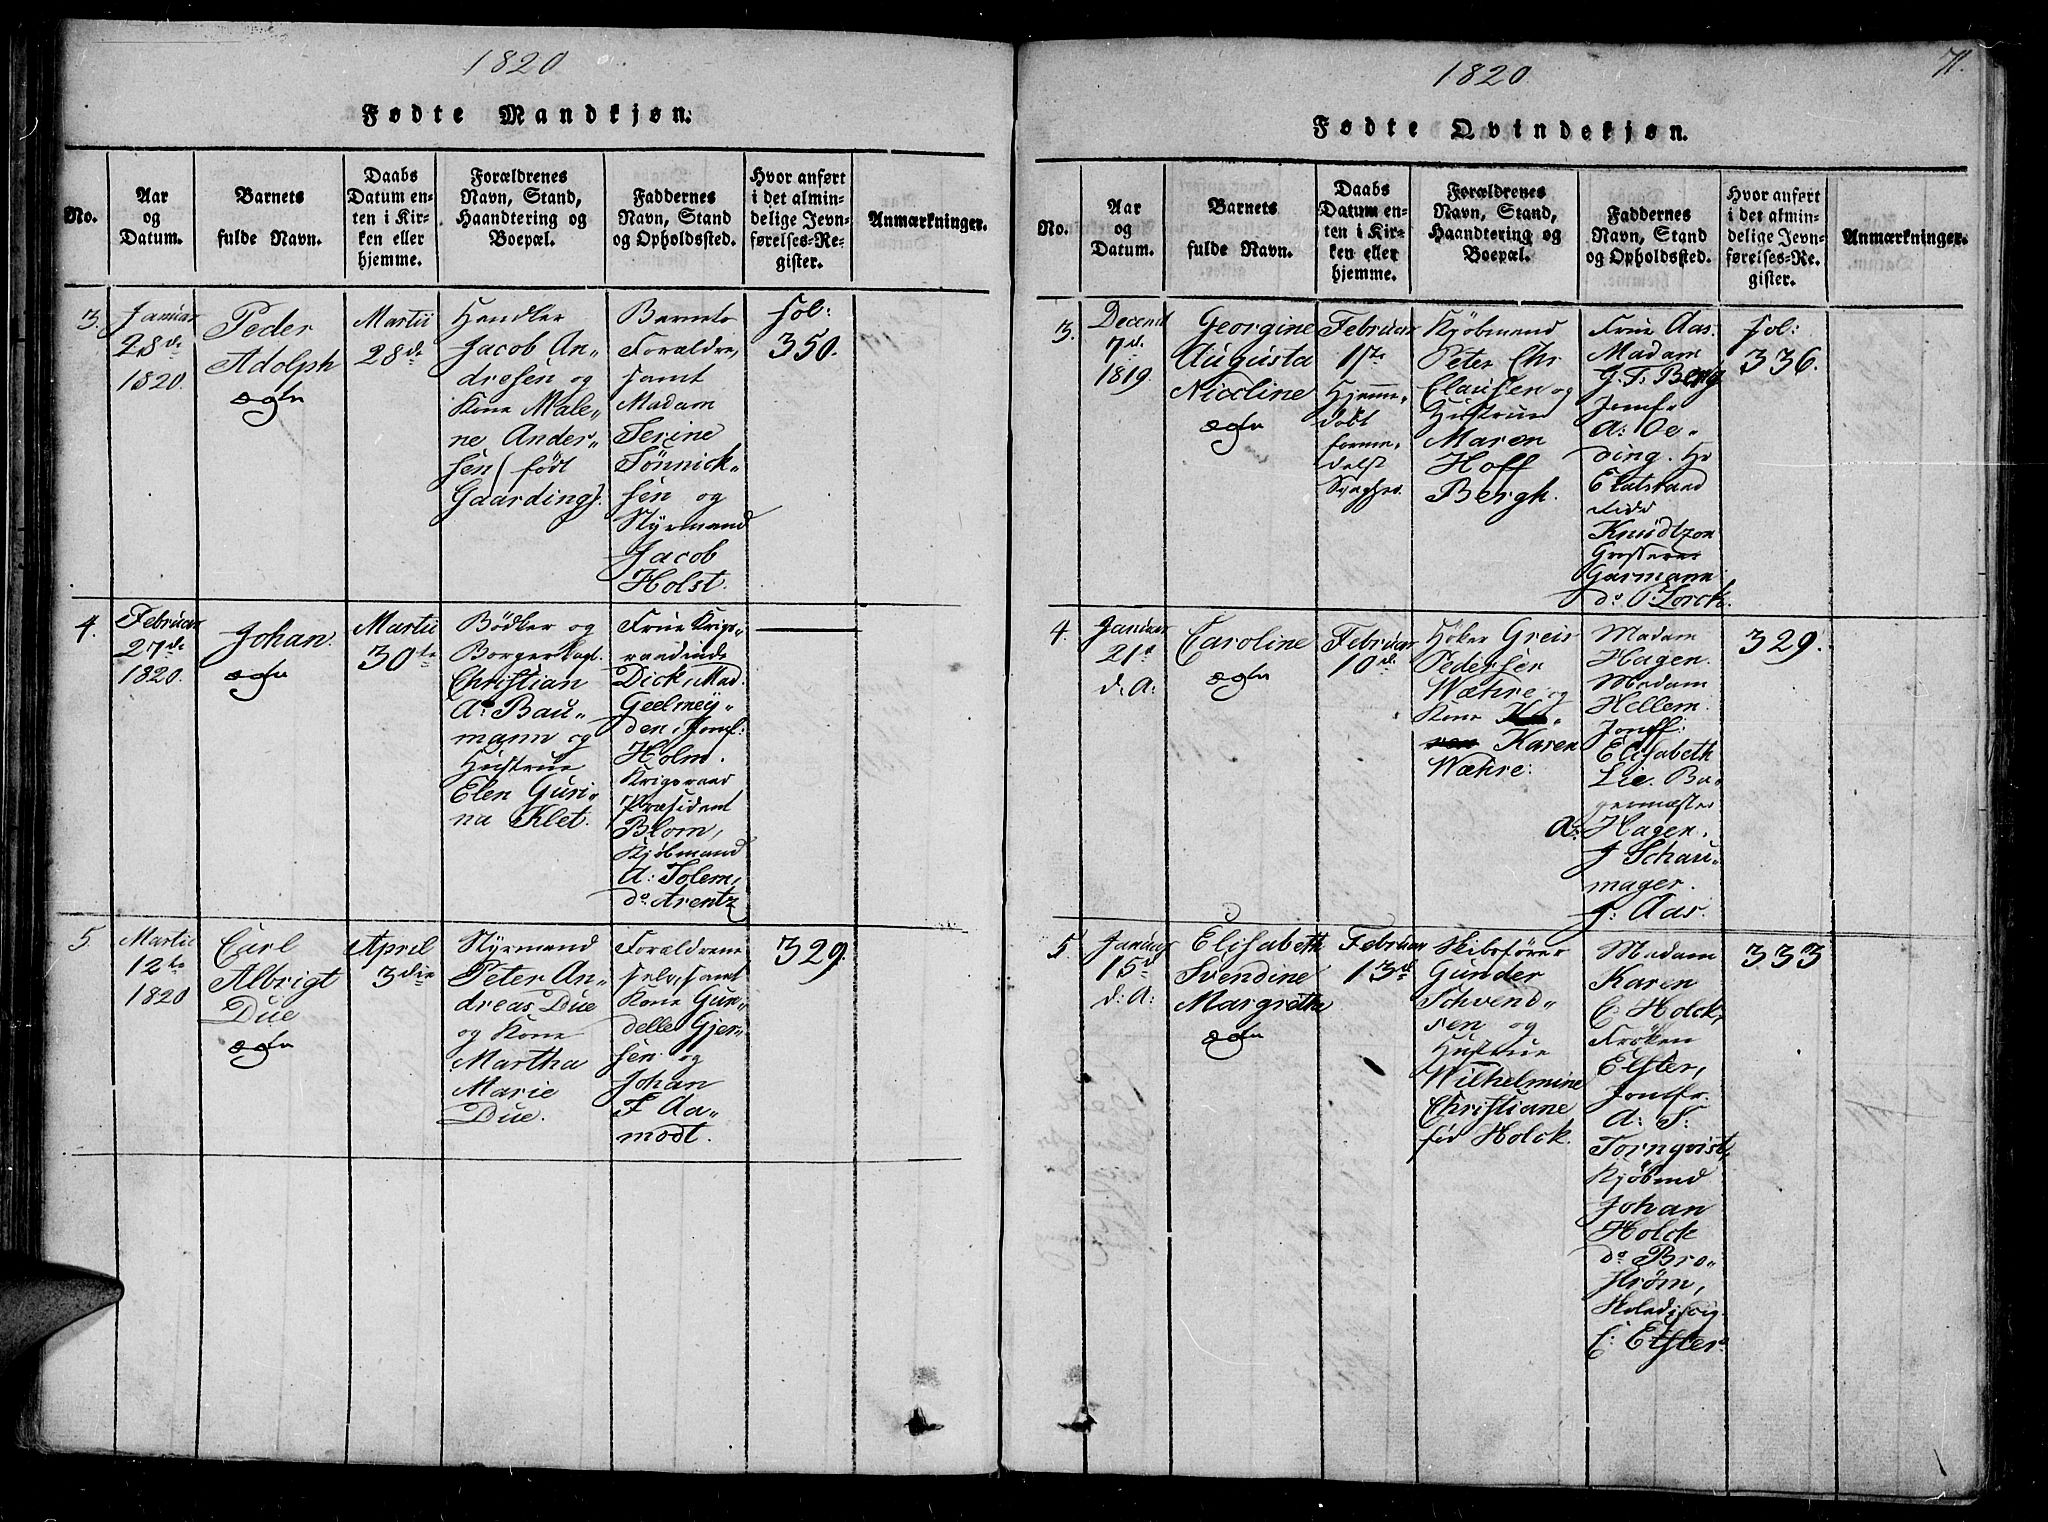 1820
Fødte Mandkjøn.
No.
Aar
og
Datum.
Barnets
fulde Navn.
Daabs
Datum en-
ten i Kir-
ken eller
hjemme.
Forældrenes
Navn, Stand,
Haandtering og
Boepæl.
Faddernes
Navn, Stand
og Opholdssted.
Hvor anført
i det almin-
delige Jevn-
førelses-Re-
gister.
Anmærkninger.
3.
Januar
28de
1820.
Peder
Adolph
ægte
Martii
28de
Handler
Jacob An„
dresen og
Kone Male„
ne Ander„
sen (født
Gaarding).
Barnets
Forældre,
samt
Madam
Serine
Sønnick„
sen og
Styrmand
Jacob
Holst.
fol:
350.
4.
Februar
27de
1820.
Johan.
ægte
Martii
30te
Bödker og
Borgerkapt.
Christian
A. Bau„
mann og
Hustrue
Elen Guri„
na Klet.
Frue Krigs„
raadinde
Dick, Mad:
Geelmey„
den, Jomf:
Holm.
Krigsraad
Præsident
Blom,
Kjøbmand
A: Solem,
do Arentz
5
Martii
12te
1820
Carl
Albrigt
Due
ægte
April
3die
Styrmand
Peter An„
dreas Due
og Kone
Martha
Marie
Due.
Forældrene
selv, samt
Kone Gun„
delle Gjer„
sen og
Johan
F Aa„
modt.
329.
71.
1820.
Fødte Qvindekjøn.
No.
Aar
og
Datum.
Barnets
fulde Navn.
Daabs
Datum en-
ten i Kir-
ken eller
hjemme.
Forældrenes
Navn, Stand,
Haandtering og
Boepæl.
Faddernes
Navn, Stand
og Opholdssted.
Hvor anført
i det almin-
delige Jevn-
førelses-Re-
gister.
Anmærkninger.
3.
Decemb
7d.
1819.
Georgine
Augusta
Nicoline
ægte
Februar
1ste
Hjemme„
döbt
formе„
delst
Svaghed.
Kjöbmand
Peter Chr
Clausen og
Hustrue
Maren
Hoff
Bergh.
Frue Aas.
Madam
G. F: Berg
Jomfr
A: Oe„
ding. Hr
Etatsraad
Knudtzon
Grosserer
Garmann
do Lorck.
fol:
336.
4.
Januar
21d
d: A:
Caroline
ægte
Februar
10d.
Höker Greis
Pedersen
Wæhre og
Kone
Karen
Wæhre.
Madam
Hagen.
Madam
Hellem.
Jomfr:
Elisabeth
Lie. Ba„
germester
A: Hagen.
J Schau„
mager.
J: Aas.
329.
5.
Januar
15d
d: A:
Elisabeth
Svendine
Margrethe
ægte
Februar
13d
Skibsförer
Gunder
Schvend„
sen og
Hustrue
Wilhelmine
Christiane
föd Holck.
Madam
Karen
C. Holck,
Fröken
Elster,
Jomfr.
A: S:
Tornqvist,
Kjöbmd
Johan
Holck
do Bro„
ström,
C: Elster.
333